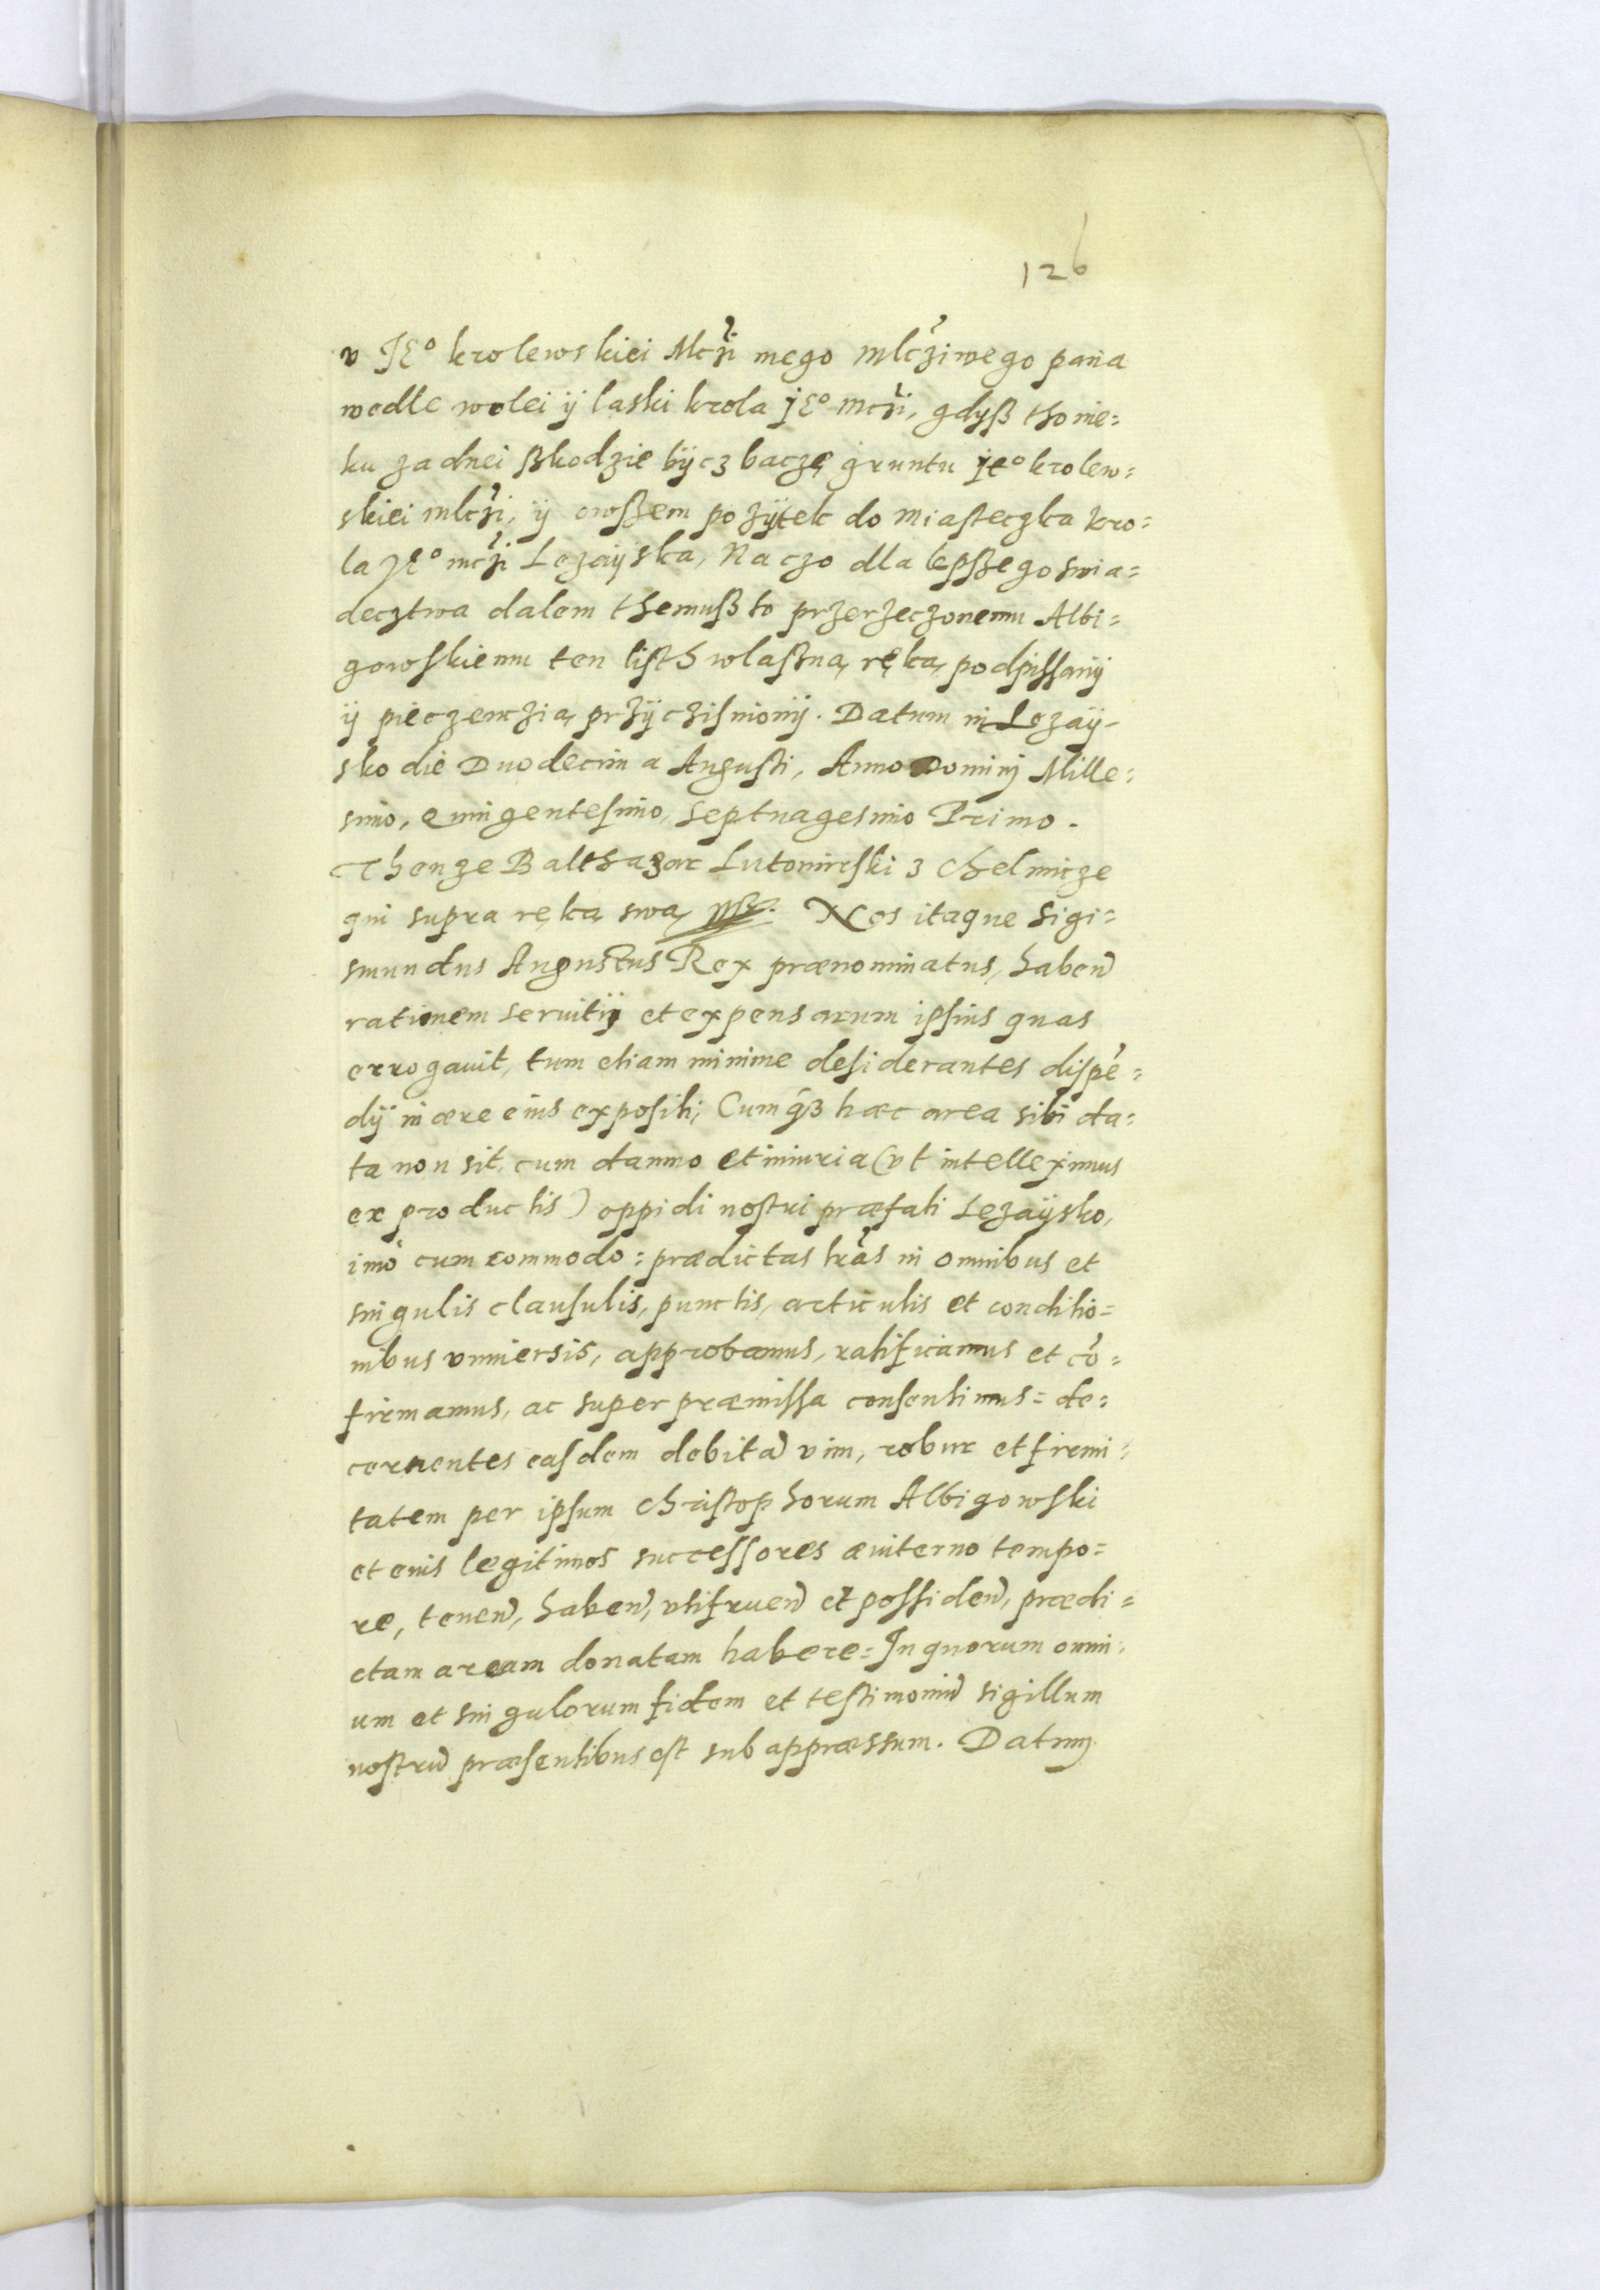 126
v Jeº krolewskiei Mczi mego mlcziwego pana
wedle wolei ÿ laski krola jeº mczi, gdyß tho nie=
ku zadnei ßkodzie bÿcz baczę gruntu jeº krolew=
skiei mlczi, ÿ owßem pożÿtek do miasteczka kro=
la Jeº mczi Lezaÿska, Na czo dla lepßego swia=
decztwa dalem themußto przerzeczonemu Albi=
gowskiemu ten listh wlaßną ręką podpissanÿ
ÿ pieczenczią przÿczisnionÿ. Datum in Lezaÿ-
sko die Duodecima Augusti, Anno Dominj Mille=
simo, quingentesimo, Septuagesimo Primo.
Thenze Balthazar Lutomirski z Chelmicze
qui supra ręką swą mßp. Nos itaque Sigi=
smundus Augustus Rex prænominatus, haben̄
rationem seruitÿ et expensarum ipsius quas
errogauit, tum etiam minime desiderantes dispē=
dÿ in ære eius expositi; Cumqȝ hæc area sibi da=
ta non sit, cum damno et iniuria (vt intelleximus
ex productis) oppidi nostri præfati Lezaÿsko,
imò cum commodo: prædictas lr̄as in omnibus et
singulis clausulis, punctis, articulis et conditio=
nibus vniuersis, approbamus, ratificamus et cō=
firmamus, ac super præmissa consentimus= de=
cernentes easdem debitā vim, robur et firmi=
tatem per ipsum Christophorum Albigowski
et eius legitimos successores æuiterno tempo=
re, tenen̄, haben̄, vtifruen̄ et possiden̄, prædi=
ctam aream donatam habere= In quorum omni=
um et singulorum fidem et testimoniū sigillum
nostrū præsentibus est subappræssum. Datum